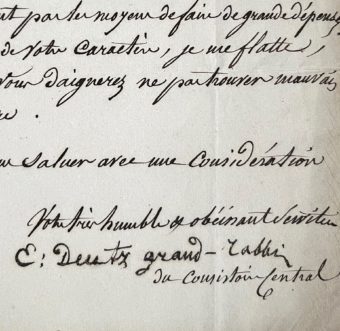 par les moyens de faire de grande dépenses
de votre Caractère, je me flatte,
vous daignerez ne pas trouver mauvais
saluer avec une Considération
Votre très humble & obéissant Serviteur
E: Deutz grand-rabbin
du Consistoire Central